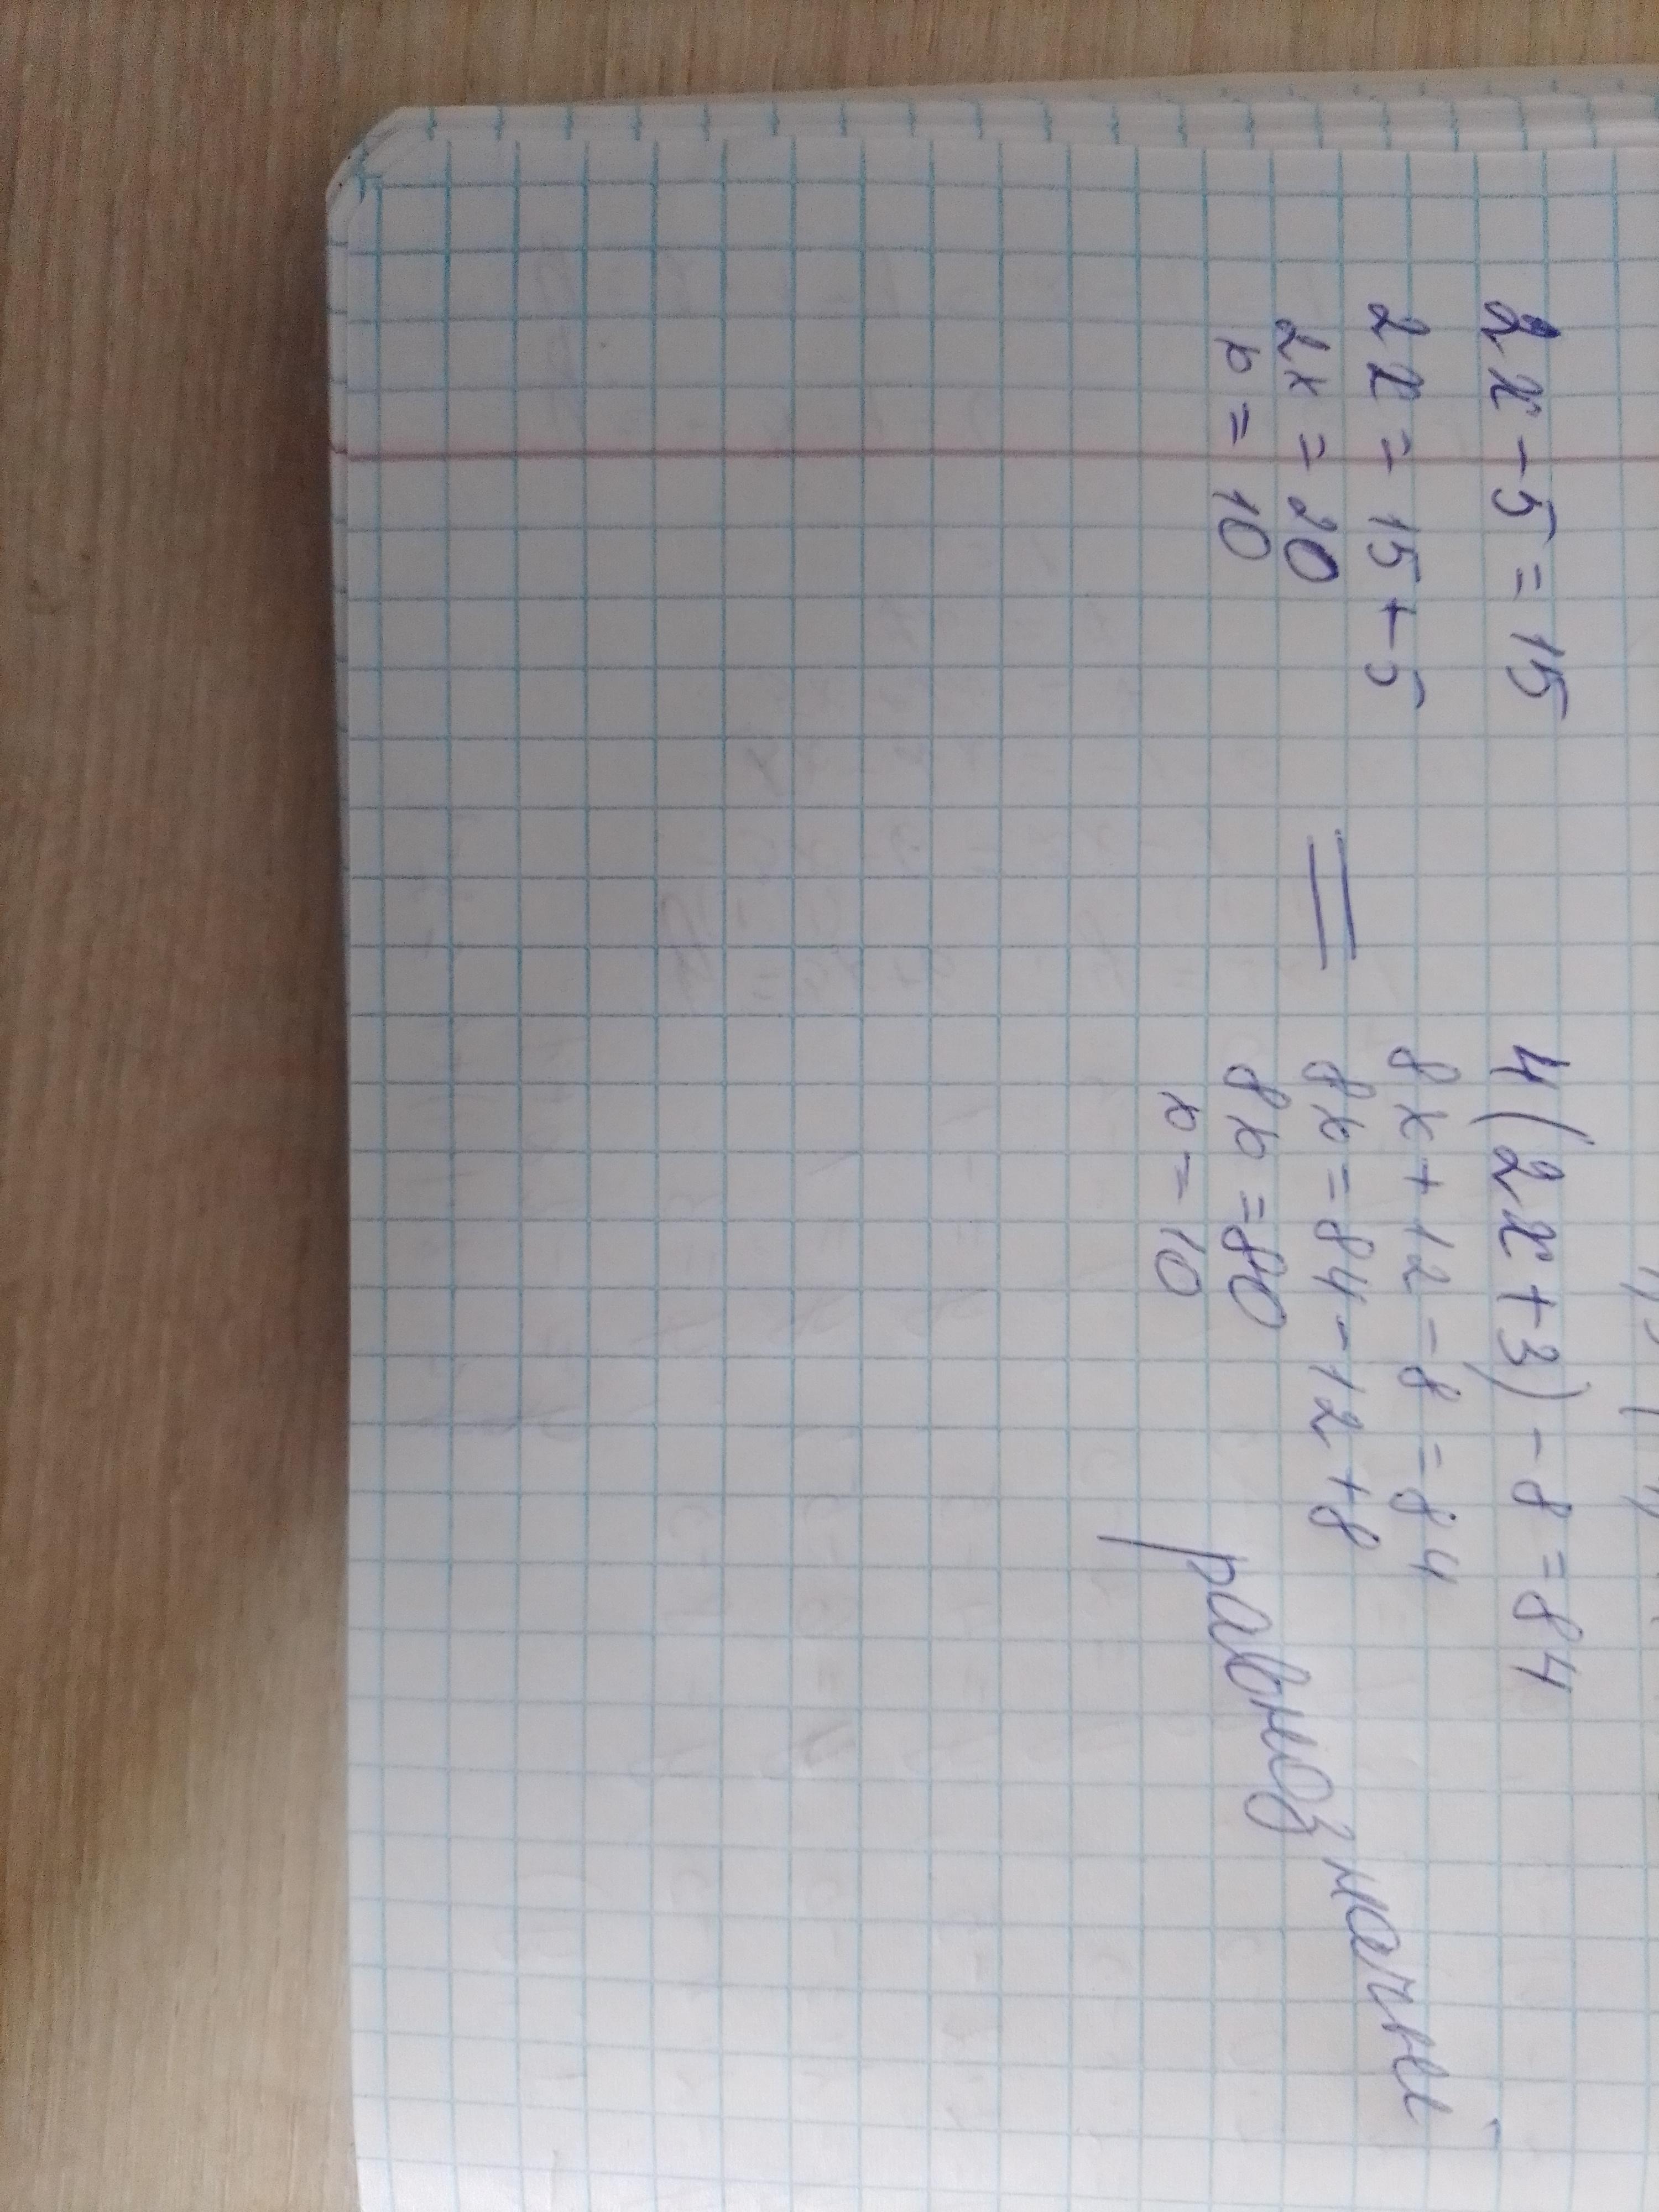 2x - 5 = 15
2x = 15 + 5
2x = 20
x = 10
=
4(2x + 3) - 8 = 84
8x + 12 - 8 = 84
8x = 84 - 12 + 8
8x = 80
x = 10
равнозначны